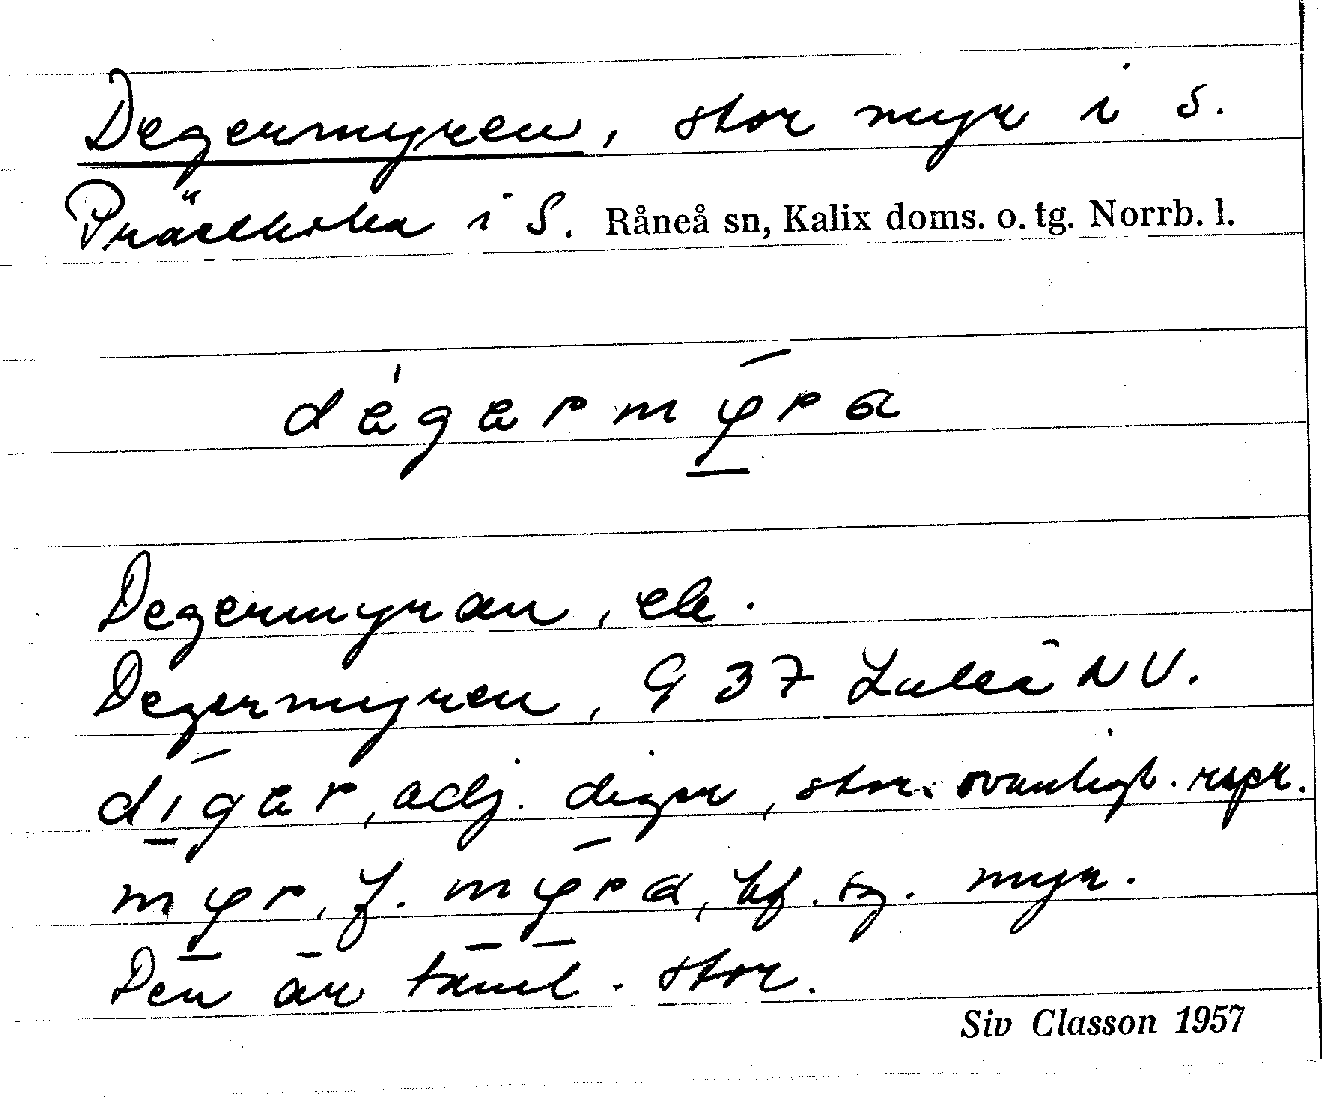 Degermyren, stor myr i s.
Prästholm i S. Råneå sn, Kalix doms. o. tg. Norrb. l.
degermyra
Degermyran, ek.
Degermyren, 9 37 Luleå NV.
diger, adj. diger, stor. ovanligt.
myr, f. myra, bf. sg. myr.
Den är täml. stor.
Siv Classon 1957